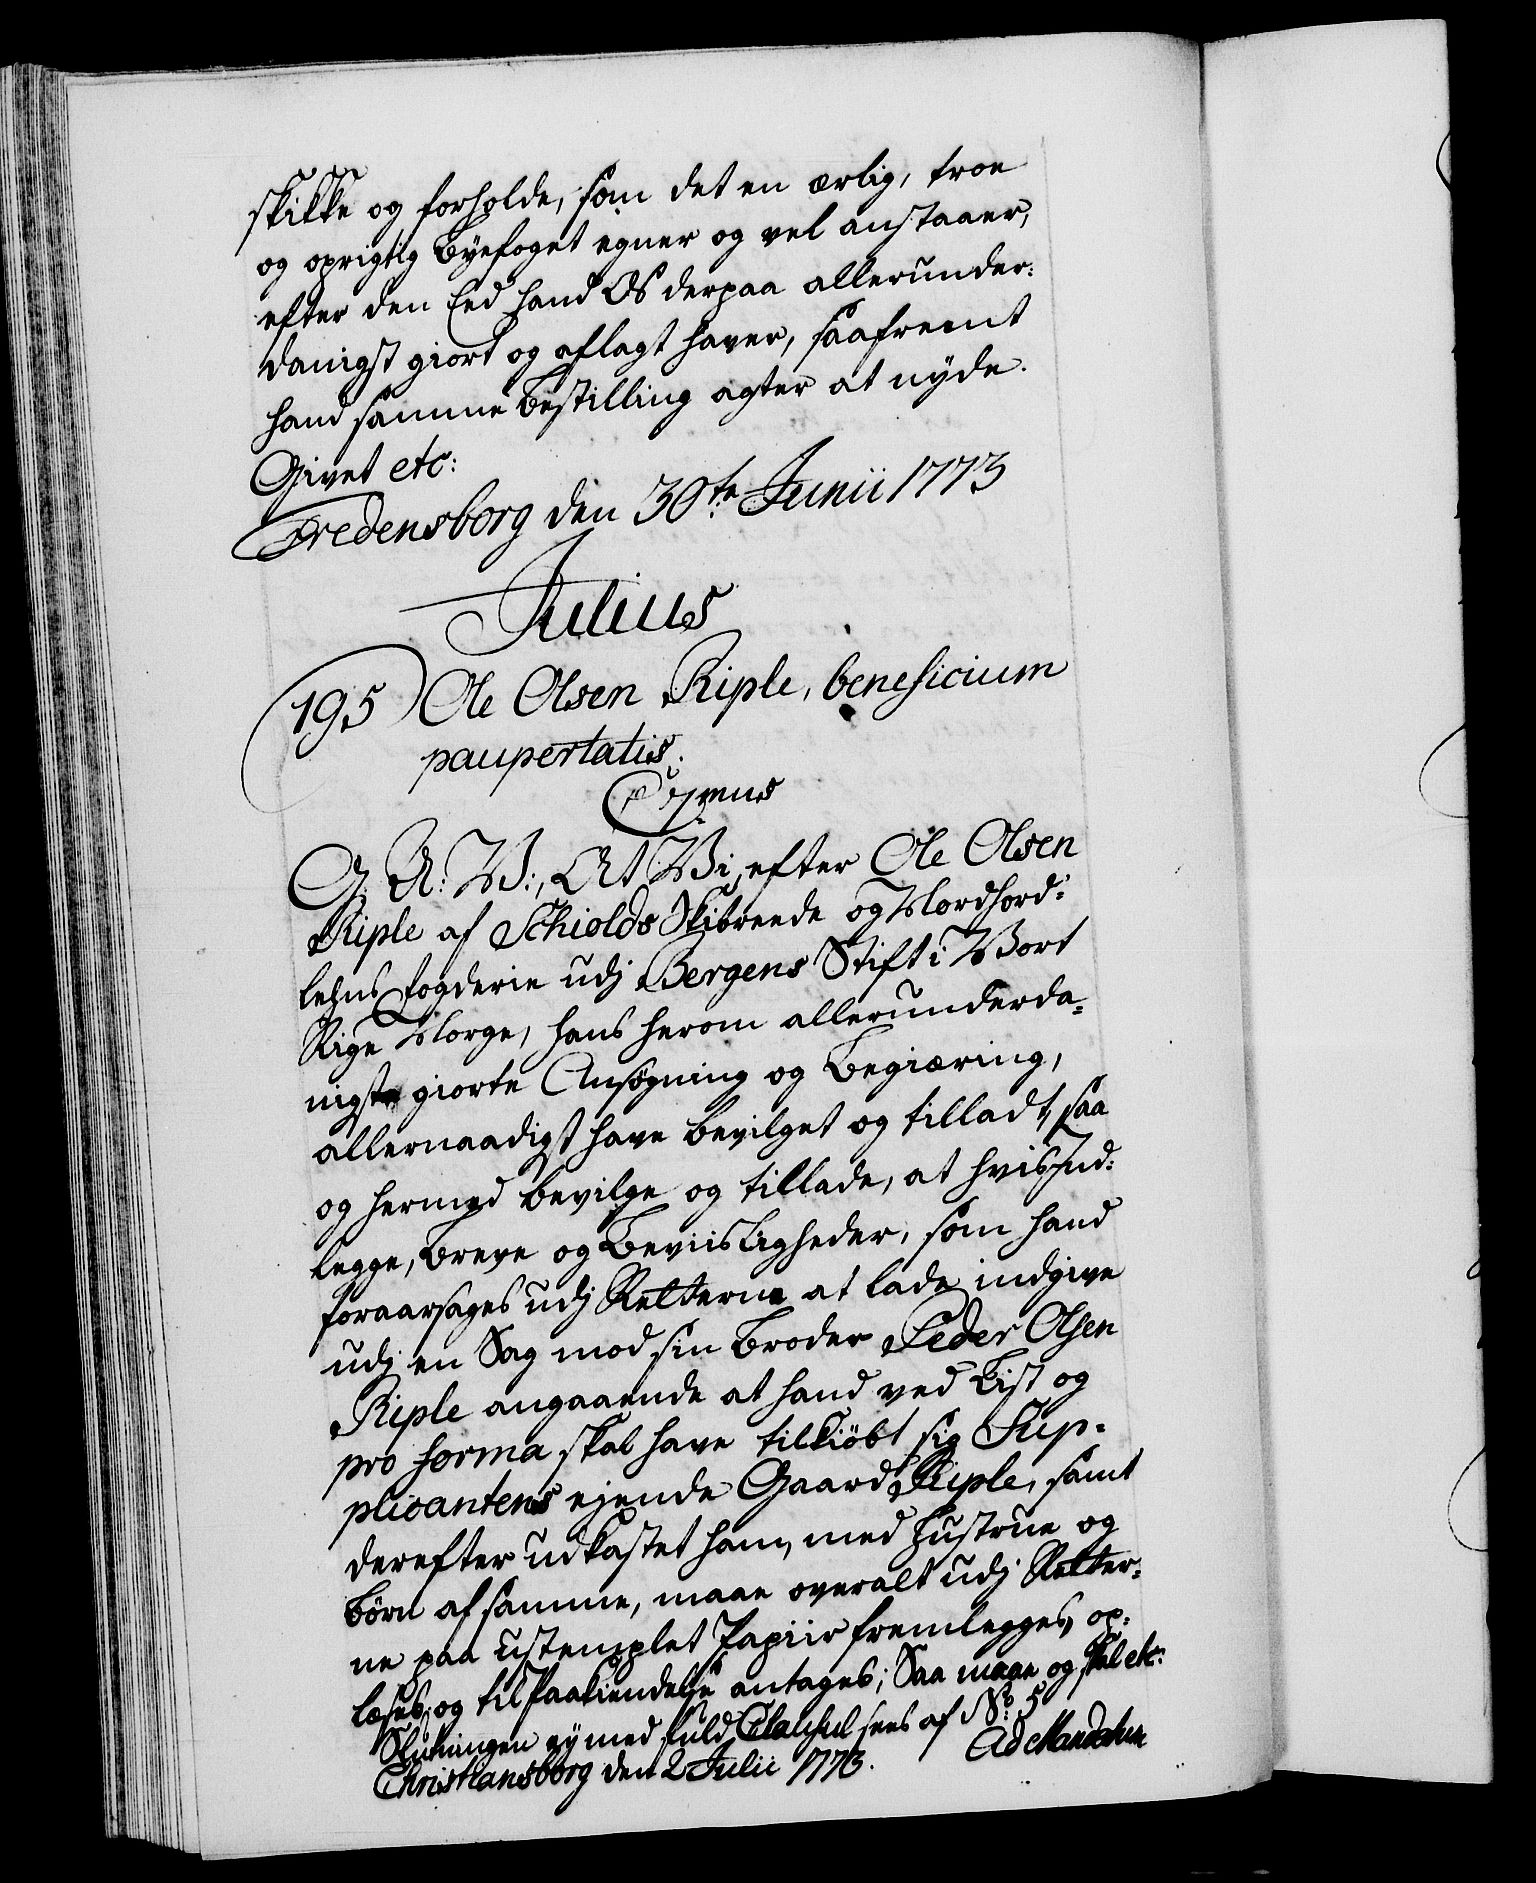 skikke og forholde, som det en ærlig, troe
og oprigtig Byefoget egner og vel anstaaer,
efter den Eed hand Os derpaa allerunder-
danigst giort og aflagt haver, saafremt
hand samme Bestilling agter at nyde.
Givet etc:
Fredensborg den 30te Junii 1773
Julius
195 Ole Olsen Riple, beneficium
paupertatis.
Gratis
G. A: V:, At Vi, efter Ole Olsen
Riple af Schiolds Skibreede og Nordhord-
lehns Fogderie udj Bergens Stift i Vort
Rige Norge, hans herom allerunderda-
nigste giorte Ansøgning og Begiæring,
allernaadigst have bevilget og tilladt, saa
og hermed bevilge og tillade, at hvis Ind-
legge, Breve og Beviisligheder, som hand
foraarsages udj Retterne at lade indgive
udj en Sag mod sin Broder Peder Olsen
Riple angaaende at hand ved List og
pro forma skal have tilkiøbt sig Sup-
plicantens ejende Gaard Riple, samt
derefter udkastet ham, med Hustrue og
Børn af samme, maae overalt udj Retter-
ne paa ustemplet Papiir fremlegges, op-
læses, og til Paakiendelse antages; Saa maae og skal etc:
Slutningen ej med fuld Clausul sees af No: 5
Christiansborg den 2 Julii 1773. Ad Mandatum